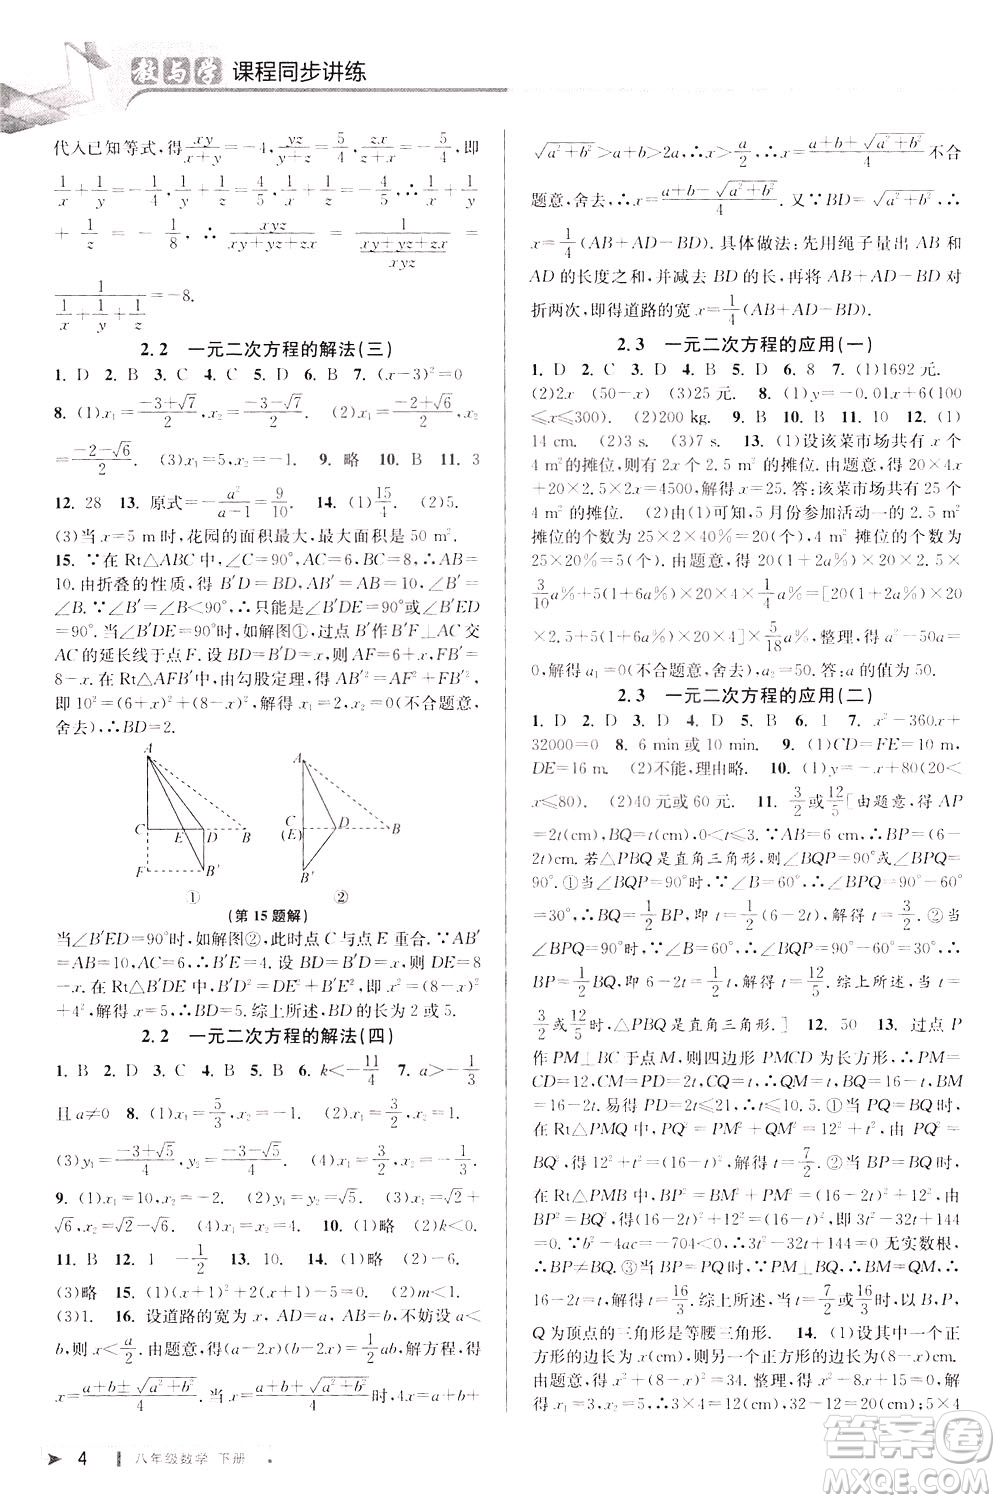 教与学 课程同步讲练
代入已知等式,得xy/(x+y)=-4,yz/(y+z)=5/4,zx/(z+x)=-5/4,即
1/x+1/y=-1/4,1/y+1/z=4/5,1/z+1/x=-4/5,∴1/x+1/y
+1/z=-1/8,∴xyz/(xy+yz+zx)=1/((xy+yz+zx)/xyz)=
1/(1/x+1/y+1/z)=-8.
2.2 一元二次方程的解法(三)
1. D 2. B 3. C 4. C 5. D 6. D 7. (x-3)²=0
8. (1)x₁=(-3+√7)/2,x₂=(-3-√7)/2. (2)x₁=(-2+√6)/2,x₂
=(-2-√6)/2. (3)x₁=5,x₂=1. 9. 略 10. B 11. 3
12. 28 13. 原式=-a²/(a-1)=9/10. 14. (1)15/4. (2)5.
(3)当x=5 m时,花园的面积最大,最大为50 m².
15. ∵在Rt△ABC中,∠C=90°,AC=6,BC=8,∴AB=
10. 由折叠的性质,得B'D=BD,AB'=AB=10,∠B'=
∠B. ∵∠B<90°,∴只能是∠B'DE=90°或∠B'ED
=90°. 当∠B'DE=90°时,如解图①,过点B'作B'F⊥AC交
AC的延长线于点F. 设BD=B'D=x,则AF=6+x,B'F=
8-x. 在Rt△AFB'中,由勾股定理,得AB'²=AF²+B'F²,
即10²=(6+x)²+(8-x)²,解得x₁=2,x₂=0(不合题意,
舍去),∴BD=2.
A C E D B F B' ①
A C (E) D B B' ②
(第15题解)
当∠B'ED=90°时,如解图②,此时点C与点E重合. ∵AB'
=10,AC=6,∴B'E=4. 设BD=B'D=x,则DE=8-
x. 在Rt△B'DE中,B'D²=DE²+B'E²,即x²=(8-x)²+
4²,解得x=5,∴BD=5. 综上所述,BD的长为2或5.
2.2 一元二次方程的解法(四)
1. B 2. D 3. D 4. B 5. B 6. k<-11/4 7. a>-1/3
且a≠0 8. (1)x₁=5/3,x₂=-1. (2)x₁=2,x₂=4.
(3)y₁=(-3+√5)/4,y₂=(-3-√5)/4. (4)x₁=x₂=√5/5.
9. (1)x₁=1,x₂=9. (2)x₁=-3,x₂=5. (3)x₁=2+
√6,x₂=2-√6. (4)x₁=x₂=2. 10. (1)略 (2)k<0.
11. B 12. 1 -1/2 13. 10. 14. (1)略 (2)4.
(3)略 15. (1)(x+1)²+2(x+1)-5=0. (2)m<1.
(3)4. 16. 设道路的宽为x,AD=a,AB=b,不妨设a<
b,则x<a/2. 由题意,得(a-2x)(b-2x)=1/2ab,解方程,得
x=(a+b±√(a²+b²))/4. 当x=(a+b+√(a²+b²))/4时,4x=a+b+
√(a²+b²)>a+b>2a,∴x>a/2,∴x=(a+b+√(a²+b²))/4不合
题意,舍去,∴x=(a+b-√(a²+b²))/4. 又∵BD=√(a²+b²),∴
x=1/4(AB+AD-BD). 具体做法:先用绳子量出AB和
AD的长度之和,并减去BD的长,再将AB+AD-BD对
折两次,即得道路的宽x=1/4(AB+AD-BD).
2.3 一元二次方程的应用(一)
1. D 2. C 3. B 4. B 5. D 6. 8 7. (1)1692元.
(2)2x (50-x) (3)25元. 8. (1)y=-0.01x+6(100
≤x≤300). (2)200 kg. 9. B 10. B 11. 10 12. (1)
14 cm. (2)3 s. (3)7 s. 13. (1)设该菜市场共有x个
4 m²的摊位,则有2x个2.5 m²的摊位. 由题意,得20×4x
+20×2.5×2x=4500,解得x=25. 答:该菜市场共有25个
4 m²的摊位. (2)由(1)可知,5月份参加活动一的2.5 m²
摊位的个数为25×2×40%=20(个),4 m²摊位的个数为
25×20%=5(个). 由题意,得20(1+2a%)×20×2.5×
3/10a%+5(1+6a%)×20×4×1/4a%=[20(1+2a%)×20
×2.5+5(1+6a%)×20×4]×5/18a%,整理,得a²-50a=
0,解得a₁=0(不合题意,舍去),a₂=50. 答:a的值为50.
2.3 一元二次方程的应用(二)
1. D 2. D 3. D 4. D 5. B 6. 1 7. x²-360x+
32000=0 8. 6 min或14 min. 9. (1)CD=FE=10 m,
DE=16 m. (2)不能,理由略. 10. (1)y=-x+80(20≤x
≤80). (2)40元或60元. 11. 3/2或12/5[由题意,得AP
=2t(cm),BQ=t(cm),0<t≤3. ∵AB=6 cm,∴BP=(6-
2t)cm. 若△PBQ是直角三角形,则∠BQP=90°或∠BPQ
=90°. ①当∠BQP=90°时,∵∠B=60°,∴∠BPQ=30°,
∴BQ=1/2BP,即t=1/2(6-2t),解得t=3/2. ②当∠
BPQ=90°时,∵∠B=60°,∴∠BQP=30°,∴
BP=1/2BQ,即6-2t=1/2t,解得t=12/5. 综上所述,当t=
3/2或12/5时,△PBQ是直角三角形.] 12. 50 13. 过点P
作PM⊥BC于点M,则四边形PMCD为长方形,∴PM=
CD=12,CM=PD=2t,CQ=t,∴QM=CM-CQ=2t-t
=t. 易得BC=16,0≤2t≤21,∴0≤t≤10.5. ①当PQ=BQ时,
在Rt△PMQ中,PQ²=PM²+QM²=12²+t²,由PQ²=
BQ²,得12²+t²=(16-t)²,解得t=7/2. ②当BP=BQ时,
在Rt△PMB中,BP²=BM²+PM²=(16-2t)²+12²,由
BP²=BQ²,得(16-2t)²+12²=(16-t)²,即3t²-32t+144
=0. ∵b²-4ac=-704<0,∴3t²-32t+144=0无实数根,
∴BP≠BQ. ③当BP=PQ时,∵PM⊥BC,∴BM=QM,∴
16-2t=t,解得t=16/3. 综上所述,当t=7/2或16/3时,以B,P,
Q为顶点的三角形是等腰三角形. 14. (1)设其中一个正
方形的边长为x cm,则另一个正方形的边长为(8-x)cm.
由题意,得x²+(8-x)²=34. 整理,得x²-8x+15=0,
解得x₁=3,x₂=5. 当x=3时,4×3=12,8-x=5;5×4
4 八年级数学 下册